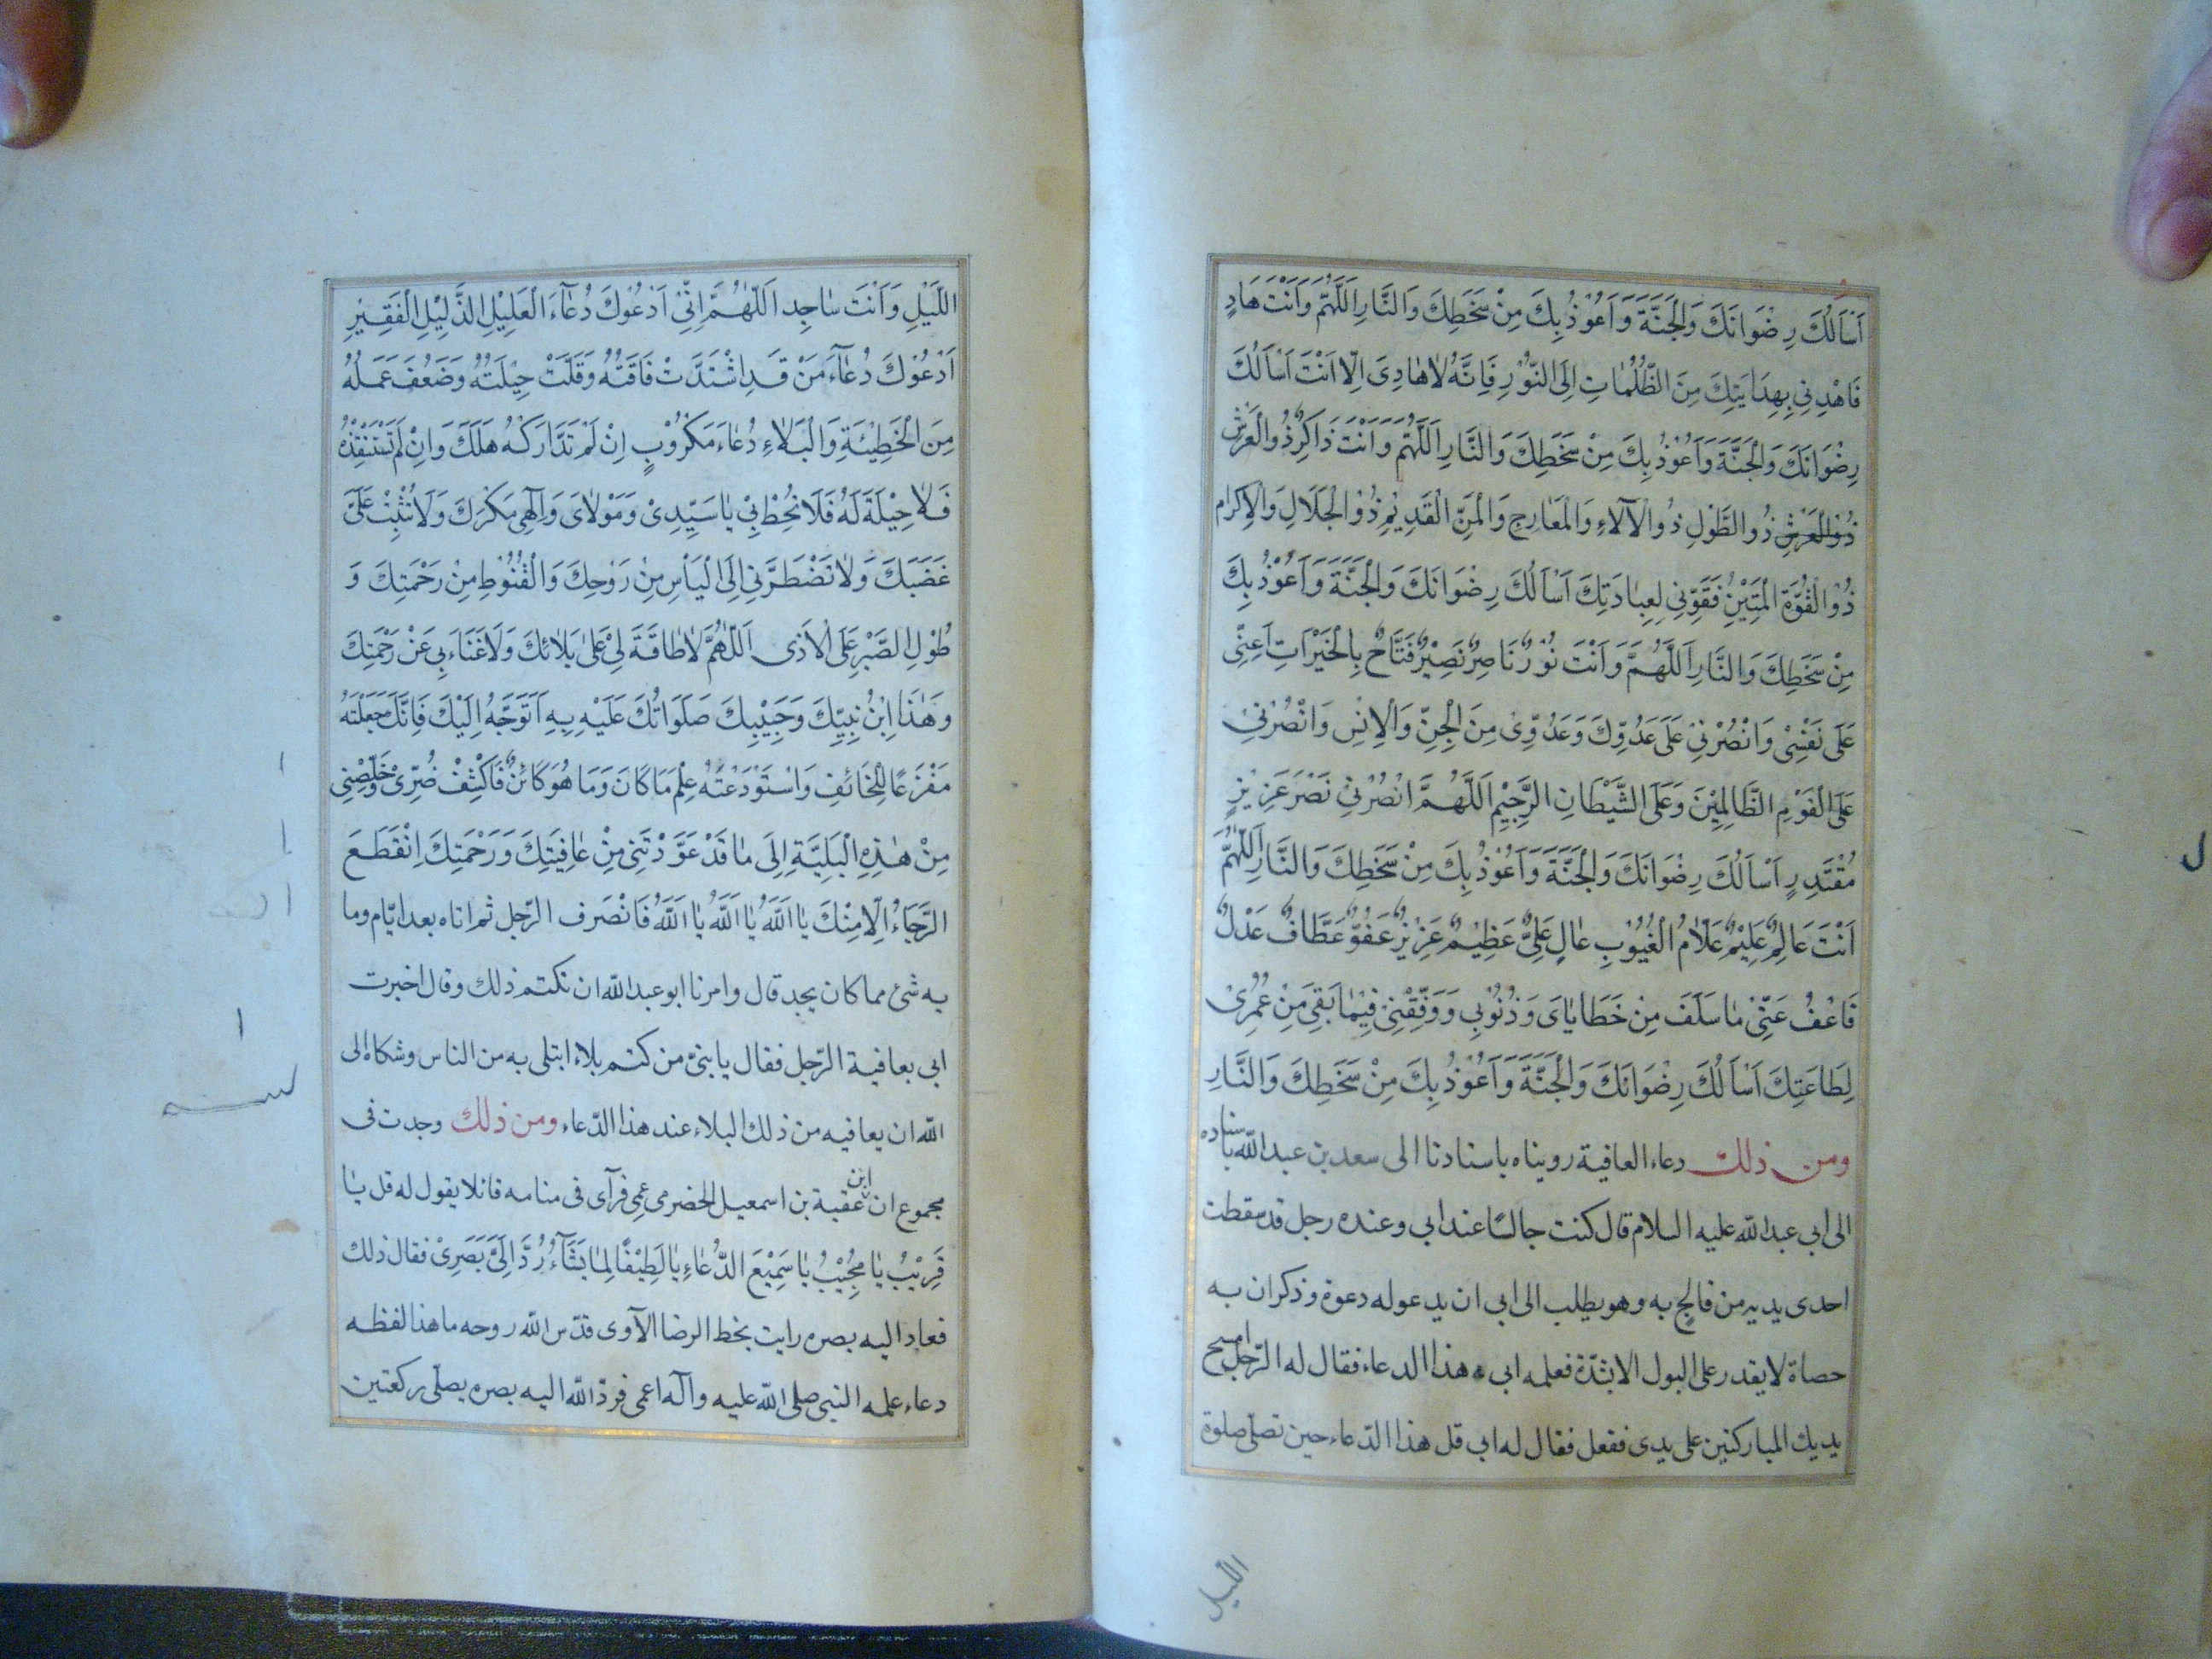 اَسْأَلُكَ رِضْوَانَكَ وَالْجَنَّةَ وَاَعُوْذُ بِكَ مِنْ سَخَطِكَ وَالنَّارِ اَللّٰهُمَّ وَاَنْتَ هَادٍ
فَاهْدِنِي بِهِدَايَتِكَ مِنَ الظُّلُمٰاتِ اِلَى النُّوْرِ فَاِنَّهُ لٰا هٰادِيَ اِلّٰا اَنْتَ اَسْأَلُكَ
رِضْوَانَكَ وَالْجَنَّةَ وَاَعُوْذُ بِكَ مِنْ سَخَطِكَ وَالنَّارِ اَللّٰهُمَّ وَاَنْتَ ذَاكِرٌ ذُو الْعَرْشِ
ذُو الْعَرْشِ ذُو الطَّوْلِ ذُو الْآلَاءِ وَالْمَعَارِجِ وَالْمَنِّ الْقَدِيْمِ ذُو الْجَلَالِ وَالْاِكْرَامِ
ذُو الْقُوَّةِ الْمَتِيْنِ فَقَوِّنِي لِعِبَادَتِكَ اَسْأَلُكَ رِضْوَانَكَ وَالْجَنَّةَ وَاَعُوْذُ بِكَ
مِنْ سَخَطِكَ وَالنَّارِ اَللّٰهُمَّ وَاَنْتَ نُوْرٌ نَاصِرٌ نَصِيْرٌ فَتَّاحٌ بِالْخَيْرَاتِ اَعِنِّي
عَلَى نَفْسِيْ وَانْصُرْنِي عَلَى عَدُوِّكَ وَعَدُوِّيْ مِنَ الْجِنِّ وَالْاِنْسِ وَانْصُرْنِيْ
عَلَى الْقَوْمِ الظَّالِمِيْنَ وَعَلَى الشَّيْطَانِ الرَّجِيْمِ اَللّٰهُمَّ انْصُرْنِيْ نَصْرَ عَزِيْزٍ
مُقْتَدِرٍ اَسْأَلُكَ رِضْوَانَكَ وَالْجَنَّةَ وَاَعُوْذُ بِكَ مِنْ سَخَطِكَ وَالنَّارِ اَللّٰهُمَّ
اَنْتَ عَالِمٌ عَلِيْمٌ عَلّٰامُ الْغُيُوْبِ عٰالٍ عَلِيٌّ عَظِيْمٌ عَزِيْزٌ عَفُوٌّ عَطَّافٌ عَدْلٌ
فَاعْفُ عَنِّيْ مٰا سَلَفَ مِنْ خَطَايٰايَ وَذُنُوْبِي وَوَفِّقْنِيْ فِيْمٰا بَقِيَ مِنْ عُمُرِيْ
لِطَاعَتِكَ اَسْأَلُكَ رِضْوَانَكَ وَالْجَنَّةَ وَاَعُوْذُ بِكَ مِنْ سَخَطِكَ وَالنَّارِ
ومن ذلك دعاء العافية رويناه باسنادنا الى سعد بن عبد الله باسناده
الى ابى عبد الله عليه السلام قال كنت جالسًا عند ابى وعنده رجل قد سقطت
احدى يديه من فالج به وهو يطلب الى ابى ان يدعو له دعوة وذكر ان به
حصاة لا يقدر على البول الا بشدّة فعلمه ابى ء هذا الدعاء فقال له الرّجل امسح
يديك المباركتين على يدى ففعل فقال له ابى قل هذا الدّعاء حين تصلّى صلوة
الليل
اللَّيْلِ وَاَنْتَ سٰاجِد اَللّٰهُمَّ اِنِّيْ اَدْعُوْكَ دُعٰآءَ الْعَلِيْلِ الذَّلِيْلِ الْفَقِيْرِ
اَدْعُوْكَ دُعٰآءَ مَنْ قَدِ اشْتَدَّتْ فَاقَتُهُ وَقَلَّتْ حِيْلَتُهُ وَضَعُفَ عَمَلُهُ
مِنَ الْخَطِيْئَةِ وَالْبَلٰاءِ دُعٰاءَ مَكْرُوْبٍ اِنْ لَمْ تَدَارَكْهُ هَلَكَ وَاِنْ لَمْ تَسْتَنْقِذْهُ
فَلٰا حِيْلَةَ لَهُ فَلَا تُحِطْ بِيْ يٰا سَيِّدِيْ وَمَوْلٰايَ وَاِلٰهِي مَكْرَكَ وَلَا تُثْبِتْ عَلَيَّ
غَضَبَكَ وَلٰا تَضْطَرَّنِي اِلَى الْيَأْسِ مِنْ رَوْحِكَ وَالْقُنُوْطِ مِنْ رَحْمَتِكَ وَ
طُوْلِ الصَّبْرِ عَلَى الْاَذٰى اَللّٰهُمَّ لٰا طٰاقَةَ لِيْ عَلٰى بَلٰائِكَ وَلَا غَنَاءَ بِي عَنْ رَحْمَتِكَ
وَهٰذَا ابْنُ نَبِيِّكَ وَحَبِيْبِكَ صَلَوَاتُكَ عَلَيْهِ بِهِ اَتَوَجَّهُ اِلَيْكَ فَاِنَّكَ جَعَلْتَهُ
مَفْزَعًا لِلْخَائِفِ وَاسْتَوْدَعْتَهُ عِلْمَ مَا كَانَ وَمَا هُوَ كَائِنٌ فَاكْشِفْ ضُرِّيْ وَخَلِّصْنِي
مِنْ هٰذِهِ الْبَلِيَّةِ اِلَى مٰا قَدْ عَوَّدْتَنِي مِنْ عٰافِيَتِكَ وَرَحْمَتِكَ اِنْقَطَعَ
الرَّجَاءُ اِلّٰا مِنْكَ يٰا اَللّٰهُ يٰا اَللّٰهُ يٰا اَللّٰهُ فَانْصَرف الرّجل ثم اتاه بعد ايّام وما
به شئ مما كان يجد قال وامرنا ابو عبد الله ان نكتم ذلك وقال اخبرت
ابى بعافية الرّجل فقال يا بنىّ من كتم بلاء ابتلى به من الناس وشكاه الى
الله ان يعافيه من ذلك البلاء عند هذا الدّعاء ومن ذلك وجدت فى
مجموع ان ابن عقبة بن اسمعيل الحضرمى عمى فرآى فى منامه قائلا يقول له قل يٰا
قَرِيْبُ يٰا مُجِيْبُ يٰا سَمِيْعَ الدُّعٰاءِ يٰا لَطِيْفًا لِمٰا يَشٰآءُ رُدَّ اِلَيَّ بَصَرِيْ فقال ذلك
فعاد اليه بصره رايت بخط الرضا الآوى قدّس الله روحه ما هذا لفظه
دعاء علمه النبى صلى الله عليه وآله اعمى فردّ الله اليه بصره يصلّى ركعتين